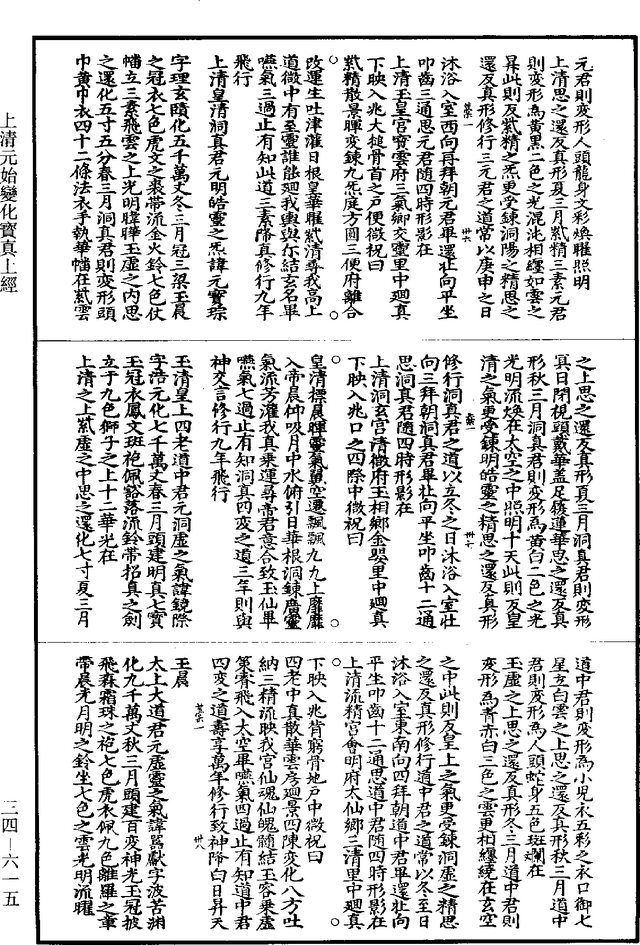 元君則變形人頭龍身文彩煥曜照明
上清思之還反真形夏三月紫精三素元君
則變形為黃黑二色之光混沌相纏如雲之
昇此則反紫精之炁更受鍊洞陽之精思之
還反真形修行三元君之道常以庚申之日
沐浴入室西向再拜朝元君畢還北向平坐
叩齒三通思元君隨四時形影在
上清玉皇宮寶雲府三氣鄉交靈里中廻真
下映入兆大搥骨首之戶便微祝曰
紫精散景暉變鍊九炁庭方圓三便府離合
改運生吐津灌日根皇華曜紫清尋我高上
道微中有至靈誰能廻我輿與尒結玄名畢
嚥氣三過止有知此道三素降真修行九年
飛行
上清皇清洞真君元明皓靈之炁諱元寶琮
字理玄賾化五千萬丈冬三月冠三梁玉晨
之冠衣七色虎文之裘帶流金火鈴七色仗
幡立三素飛雲之上光明暐曄玉虛之內思
之還化五寸五分春三月洞真君則變形頭
巾黃巾衣四十二條法衣手執華幡在紫雲
之上思之還反真形夏三月洞真君則變形
冥目閉視頭戴華蓋足履蓮華思之還反真
形秋三月洞真君則變形為黃白二色之光
光明流煥在太空之中照明十天此則反皇
清之氣更受鍊明皓靈之精思之還反真形
修行洞真君之道以立冬之日沐浴入室北
向三拜朝洞真君畢北向平坐叩齒十二通
思洞真君隨四時形影在
上清洞玄宮清微府玉相鄉金嬰里中廻真
下映入兆口之四際中微祝曰
皇清標晨暉靈氣真空遷飄飄九九上靡靡
入帝晨仰吸月中水俯引日華根洞鍊廣靈
氣流芳灌我真乘運尋帝君意合致玉仙畢
嚥氣七過止有知洞真四變之道三年則與
神交言修行九年飛行
玉清皇上四老道中君元洞虛之氣諱鏡際
字浩元化七千萬丈春三月頭建明真七寶
玉冠衣鳳文斑袍佩豁落流鈴帶招真之劍
立于九色獅子之上十二華光在
上清之上紫虛之中思之還化七寸夏三月
道中君則變形為小兒衣五彩之衣口御七
星立白雲之上思之還反真形秋三月道中
君則變形為人頭蛇身五色斑斕在
玉虛之上思之還反真形冬三月道中君則
變形為青赤白三色之雲更相纏繞在玄空
之中此則反皇上之氣更受鍊洞虛之精思
之還反真形修行道中君之道常以冬至日
沐浴入室東南向四拜朝道中君畢還北向
平坐叩齒十二通思道中君隨四時形影在
上清流精宮會明府太仙鄉三清里中廻真
下映入兆背窮骨地戶中微祝曰
四老中真散華雲房廻景四陳變化八方吐
納三精流映我宮仙魂仙魄髓結玉容乘虛
策騫飛入太空畢嚥氣四過止有知道中君
四變之道壽享萬年修行致神降白日昇天
玉晨
太上大道君元虛靈之氣諱 獻字波苦淵
化九千萬丈秋三月頭建百變神光玉冠披
飛森霜珠之袍七色虎衣佩九色離羅之章
帶晨光月明之鈴坐七色之雲光明流曜
上清元始變化寶真上經
三四—六一五